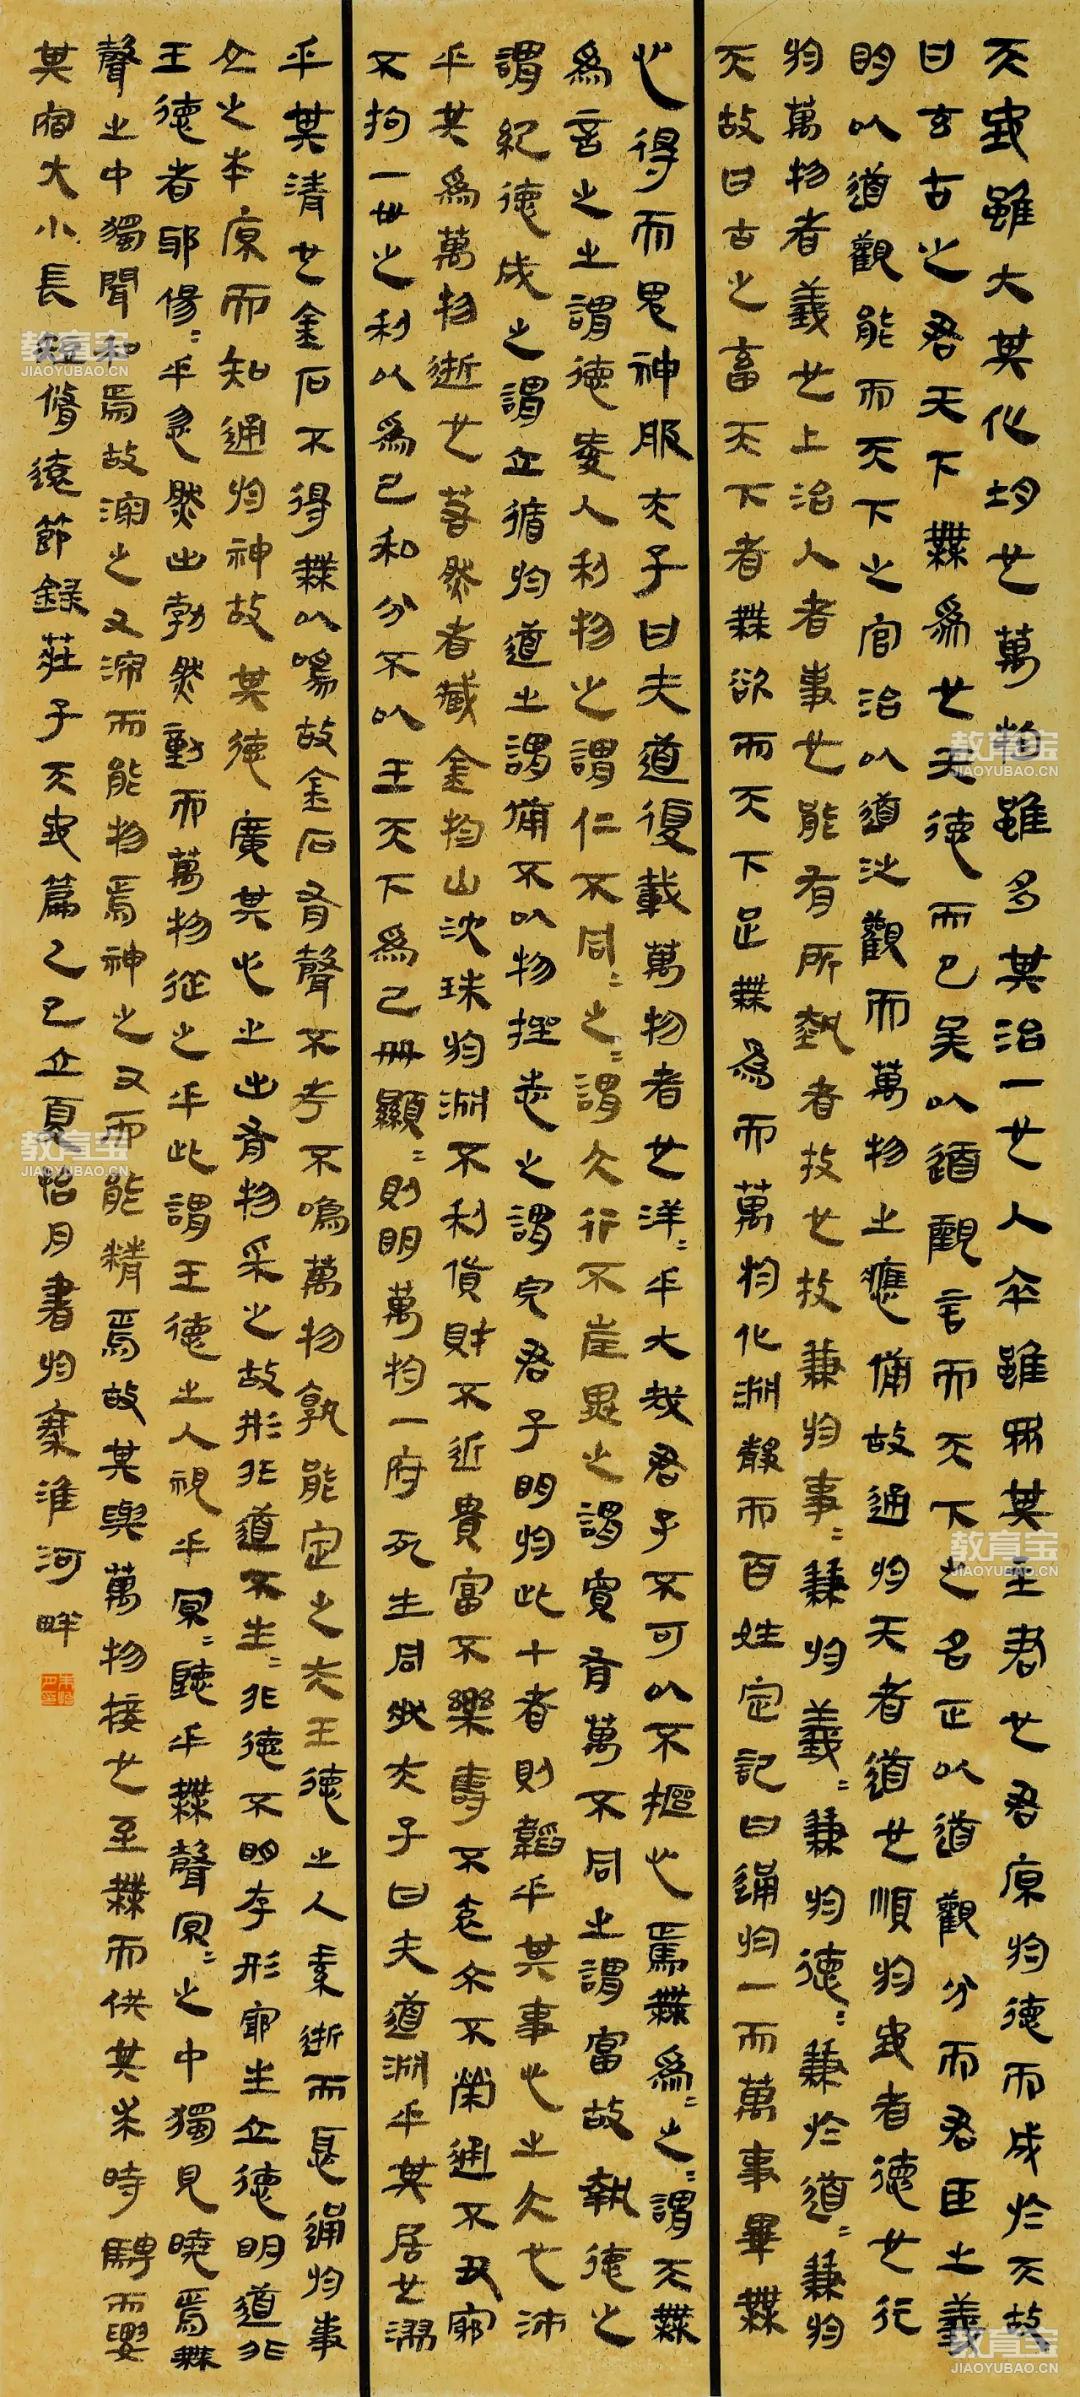 天地雖大其化均也萬物雖多其治一也人卒雖眾其主君也君原於德而成於天故
曰玄古之君天下無為也天德而已矣以道觀言而天下之名正以道觀分而君臣之義
明以道觀能而天下之官治以道泛觀而萬物之應備故通於天者道也順於地者德也行
於萬物者義也上治人者事也能有所藝者技也技兼於事〻兼於義〻兼於德〻兼於道〻兼於
天故曰古之畜天下者無欲而天下足無為而萬物化淵靜而百姓定記曰通於一而萬事畢無
心得而鬼神服夫子曰夫道復載萬物者也洋〻乎大哉君子不可以不摳心焉無為〻之〻謂天無
為言之之謂德愛人利物之謂仁不同〻之〻謂大行不崖異之謂寬有萬不同之謂富故執德之
謂紀德成之謂立循於道之謂備不以物挫志之謂完君子明於此十者則韜乎其事心之大也沛
乎其為萬物逝也若然者藏金於山沈珠於淵不利貨財不近貴富不樂壽不哀夭不榮通不丑窮
不拘一世之利以為己私分不以王天下為己處顯〻則明萬物一府死生同狀夫子曰夫道淵乎其居也漻
乎其清也金石不得無以鳴故金石有聲不考不鳴萬物孰能定之夫王德之人素逝而恥通於事
立之本原而知通於神故其德廣其心之出有物采之故形非道不生〻非德不明存形窮生立德明道非
王德者邪蕩〻乎忽然出勃然動而萬物從之乎此謂王德之人視乎冥〻聽乎無聲冥〻之中獨見曉焉無
聲之中獨聞和焉故深之又深而能物焉神之又而能精焉故其與萬物接也至無而供其求時騁而要
其宿大小長短脩遠節錄莊子天地篇乙巳立夏怡月書於秦淮河畔
教育宝
JIAOYUBAO.CN
教育宝
JIAOYUBAO.CN
教育宝
JIAOYUBAO.CN
教育宝
JIAOYUBAO.CN
教育宝
JIAOYUBAO.CN